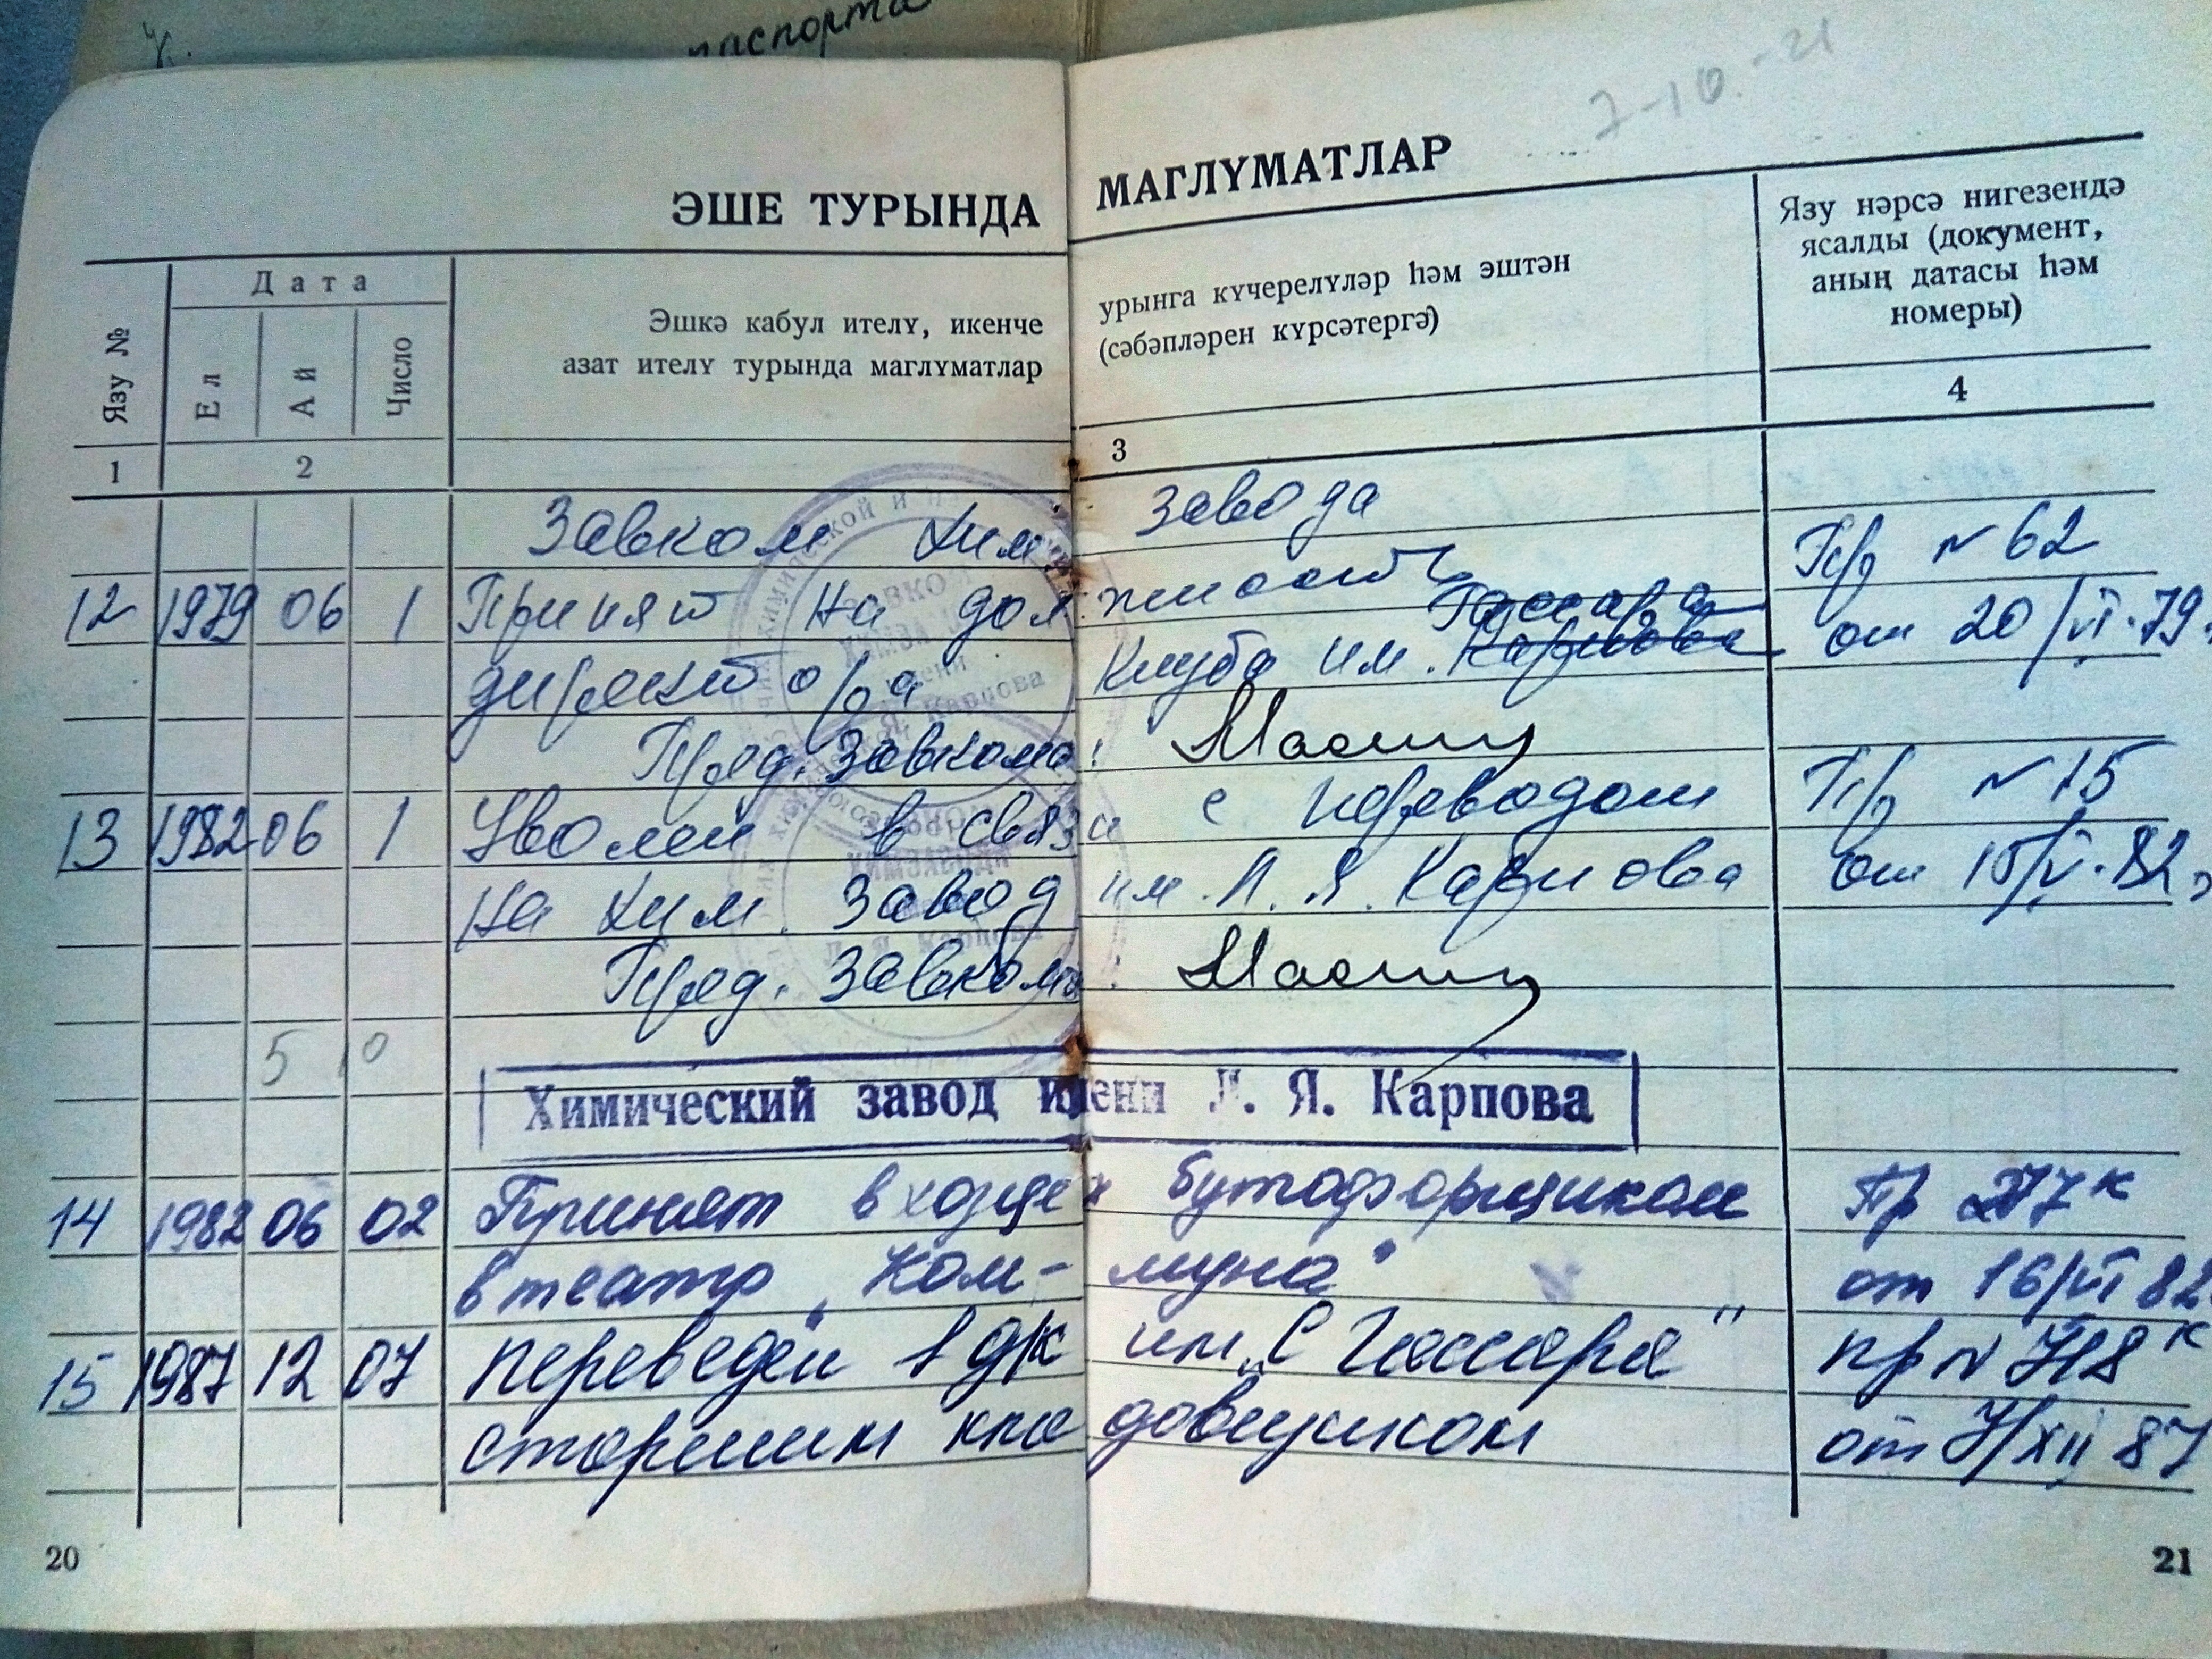 паспорта
7-10.-21
ЭШЕ ТУРЫНДА МАГЛҮМАТЛАР
Язу №
Дата
Ел
Ай
Число
Эшкә кабул ителү, икенче урынга күчерелүләр һәм эштән
азат ителү турында маглүматлар (сәбәпләрен күрсәтергә)
Язу нәрсә нигезендә
ясалды (документ,
аның датасы һәм
номеры)
1 2 3 4
Завком Хим завода
12 1979 06 1 Принят на должность Пр N 62
Гассара
директора клуба им. Карпова от 20/VI-79
Пред. Завкома:
13 1982 06 1 Уволен в связи с переводом Пр N 15
на хим. завод им. Л. Я. Карпова от 15/V-82
Пред. Завкома:
5 10
Химический завод имени Л. Я. Карпова
14 1982 06 02 Принят бутафорщиком Пр 277к
в театр „Ком- муна" от 16/VI 82
15 1987 12 07 переведен в д/к им „С Гассара" пр N 718к
старшим кла довщиком от 7/XII 87
20
21